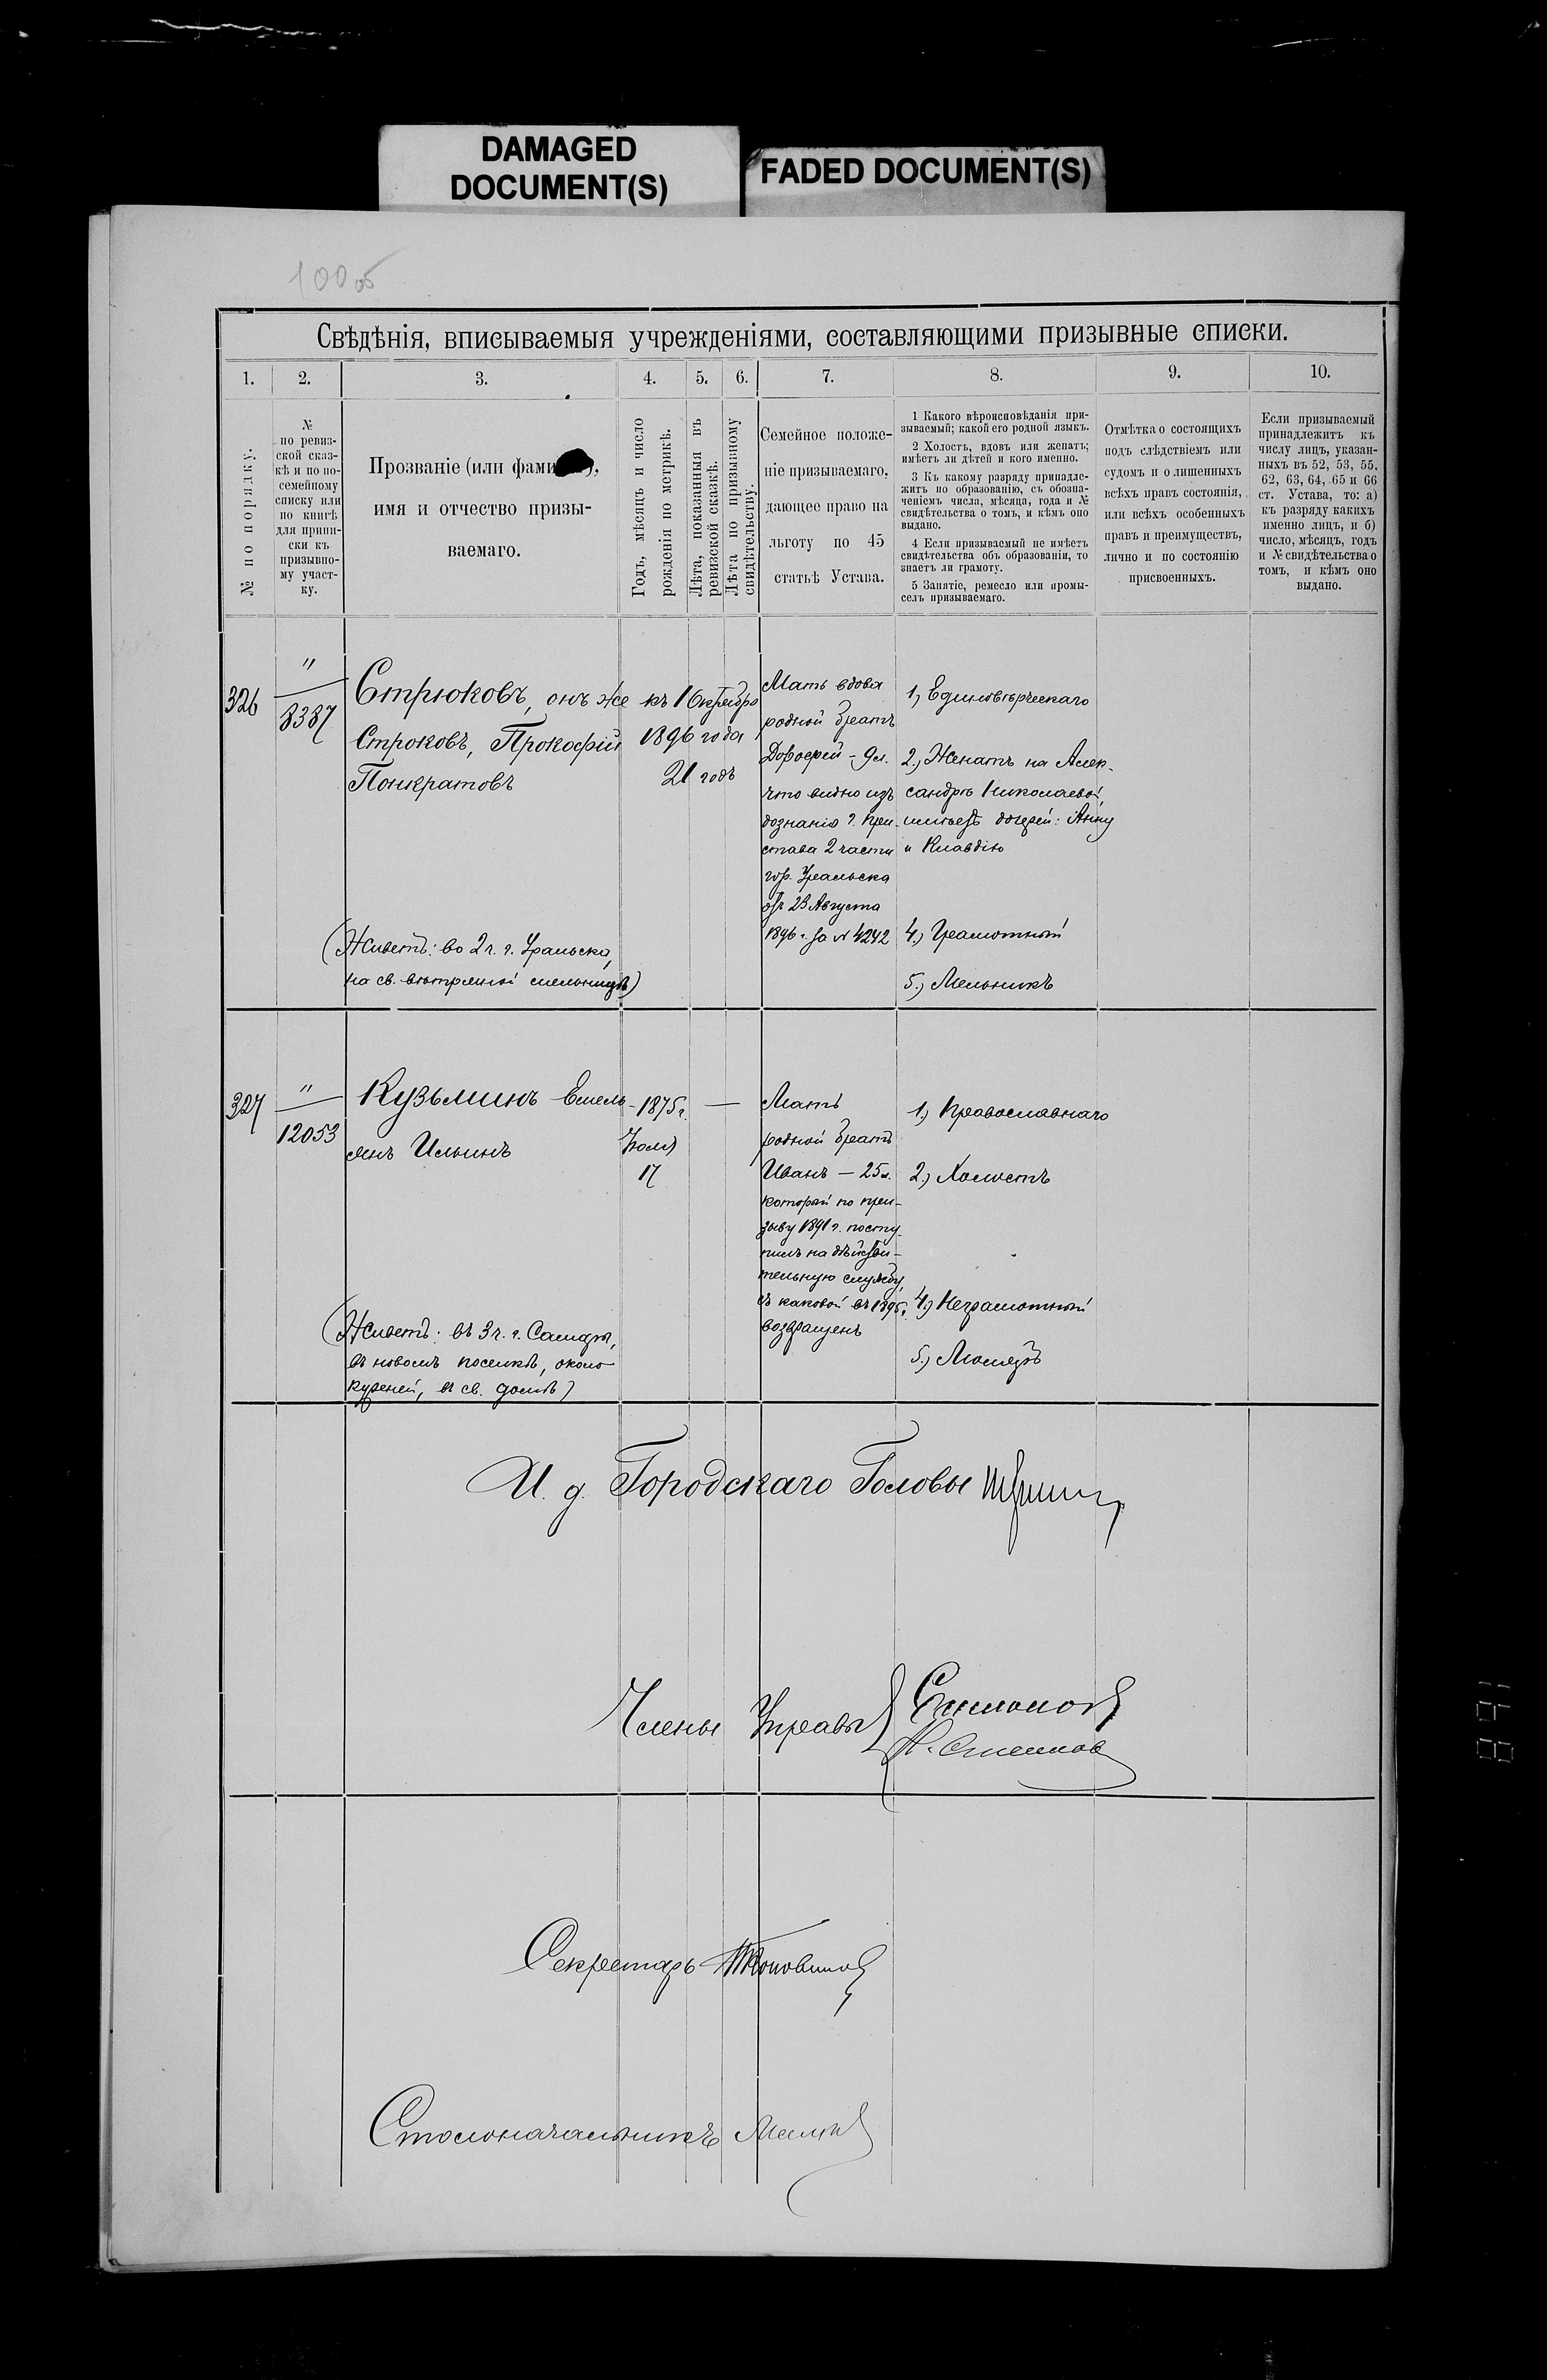 DAMAGED
DOCUMENT(S)
FADED DOCUMENT(S)
100 об
Свѣдѣнія, вписываемыя учрежденіями, составляющими призывные списки.
1.
2.
3.
4.
5.
6.
7.
8.
9.
10.
№ по порядку.
№
по ревиз-
ской сказ-
кѣ и по по-
семейному
списку или
по книгѣ
для припи-
ски къ
призывно-
му участ-
ку.
Прозваніе (или фами
имя и отчество призы-
ваемаго.
Годъ, мѣсяцъ и число
рожденія по метрикѣ.
Лѣта, показанныя въ
ревизской сказкѣ.
Лѣта по призывному
свидѣтельству.
Семейное положе-
ніе призываемаго,
дающее право на
льготу по 45
статьѣ Устава.
1 Какого вѣроисповѣданія при-
зываемый; какой его родной языкъ.
2 Холостъ, вдовъ или женатъ;
имѣетъ ли дѣтей и кого именно.
3 Къ какому разряду принадле-
житъ по образованію, съ обозна-
ченіемъ числа, мѣсяца, года и №
свидѣтельства о томъ, и кѣмъ оно
выдано.
4 Если призываемый не имѣетъ
свидѣтельства объ образованіи, то
знаетъ ли грамоту.
5 Занятіе, ремесло или промы-
селъ призываемаго.
Отмѣтка о состоящихъ
подъ слѣдствіемъ или
судомъ и о лишенныхъ
всѣхъ правъ состоянія,
или всѣхъ особенныхъ
правъ и преимуществъ,
лично и по состоянію
присвоенныхъ.
Если призываемый
принадлежитъ къ
числу лицъ, указан-
ныхъ въ 52, 53, 55,
62, 63, 64, 65 и 66
ст. Устава, то: а)
къ разряду какихъ
именно лицъ, и б)
число, мѣсяцъ, годъ
и № свидѣтельства о
томъ, и кѣмъ оно
выдано.
326
"
8387
Стрюковъ, онъ же
Строковъ, Прокофій
Понкратовъ
(Живетъ: во 2 ч. г. Уральска,
на св. вѣтреной мельницѣ)
къ 1 Октября
1896 года
21 годъ
Мать вдова
родной братъ
Дорофей - 9 л.
что видно изъ
дознанія г. При-
става 2 части
гор. Уральска
отъ 23 Августа
1896 г. за № 4242
1, Единовѣрческаго
2.) Женатъ на Алек-
сандрѣ Николаевой,
имѣетъ дочерей: Анну
и Клавдію
4.) Грамотный
5.) Мельникъ
327
"
12053
Кузьминъ Емель-
янъ Ильинъ
(Живетъ: въ 3 ч. г. Самары,
въ новомъ поселкѣ, около
куреней, въ св. домѣ)
1875 г.
Іюля
17
—
Мать
родной братъ
Иванъ — 25 л.
который по при-
зыву 1891 г. посту-
пилъ на дѣйстви-
тельную службу,
съ каковой въ 1895 г.
возвращенъ
1.) Православнаго
2.) Холостъ
4.) Неграмотный
5.)
И. д. Городскаго Головы
Члены Управы
Секретарь
Столоначальникъ
891